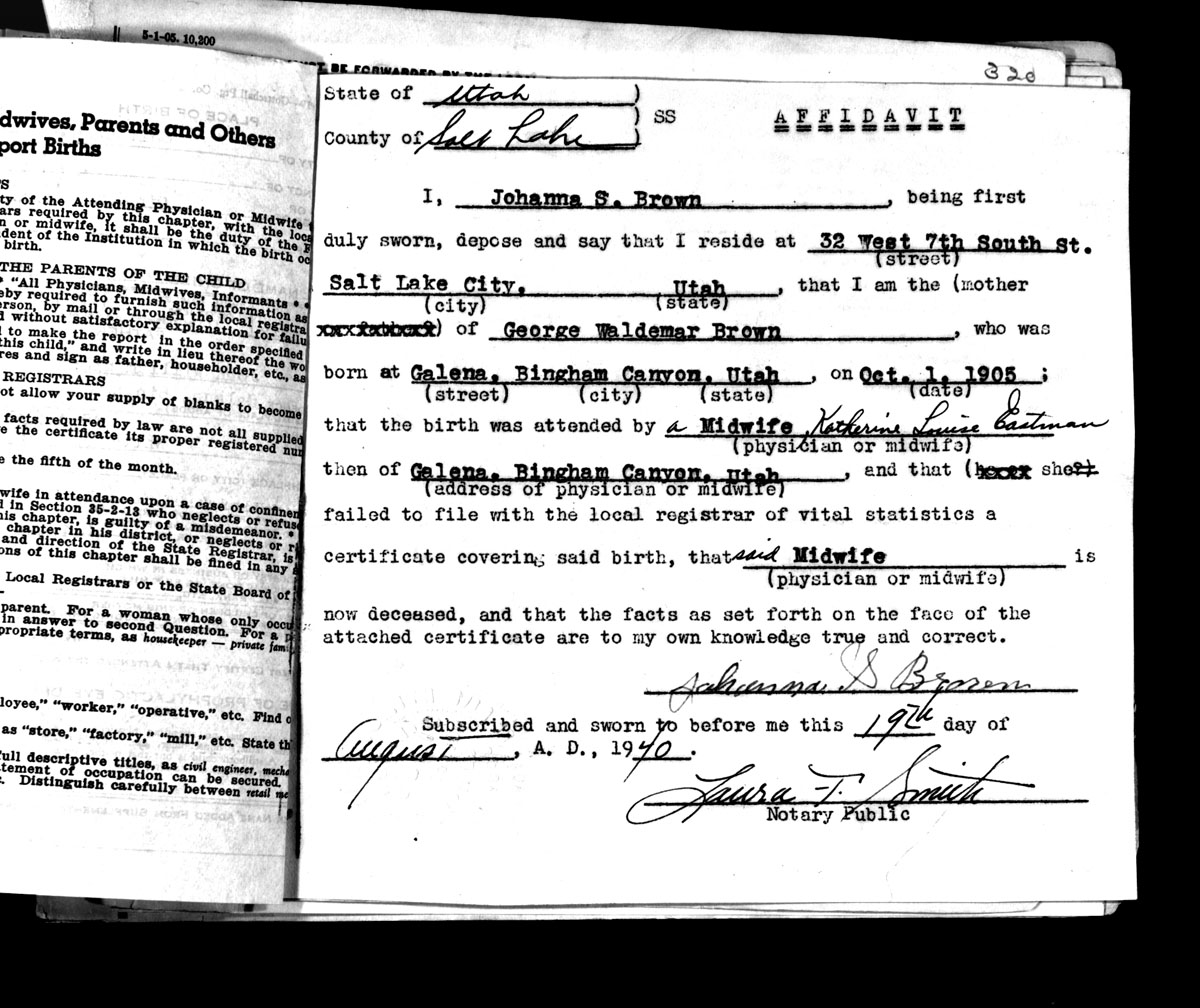 5-1-05. 10,200
BE FORWARDED BY THE
320
dwives, Parents and Others
port Births
ty of the Attending Physician or Midwife
ars required by this chapter, with the loc
n or midwife, it shall be the duty of the
dent of the Institution in which the birth oc
birth.
THE PARENTS OF THE CHILD
"All Physicians, Midwives, Informants * *
eby required to furnish such information as
erson, by mail or through the local registra
d without satisfactory explanation for failu
to make the report in the order specified
this child," and write in lieu thereof the wo
res and sign as father, householder, etc., as
REGISTRARS
ot allow your supply of blanks to become
facts required by law are not all supplied
e the certificate its proper registered nu
e the fifth of the month.
wife in attendance upon a case of confinen
d in Section 35-2-13 who neglects or refuse
his chapter, is guilty of a misdemeanor. *
chapter in his district, or neglects or r
and direction of the State Registrar, is
ons of this chapter shall be fined in any
Local Registrars or the State Board of
parent. For a woman whose only occu
in answer to second Question. For a p
propriate terms, as housekeeper — private fam
loyee," "worker," "operative," etc. Find o
as "store," "factory," "mill," etc. State th
full descriptive titles, as civil engineer, mecha
tement of occupation can be secured.
. Distinguish carefully between retail me
State of Utah )
) SS AFFIDAVIT
County of Salt Lake )
I, Johanna S. Brown, being first
duly sworn, depose and say that I reside at 32 West 7th South St.
(street)
Salt Lake City, Utah, that I am the (mother
(city) (state)
) of George Waldemar Brown, who was
born at Galena, Bingham Canyon, Utah, on Oct. 1, 1905;
(street) (city) (state) (date)
that the birth was attended by a Midwife Katherine Louise Eastman
(physician or midwife)
then of Galena, Bingham Canyon, Utah, and that ( she)
(address of physician or midwife)
failed to file with the local registrar of vital statistics a
certificate covering said birth, that said Midwife is
(physician or midwife)
now deceased, and that the facts as set forth on the face of the
attached certificate are to my own knowledge true and correct.
Johanna S Brown
Subscribed and sworn to before me this 19th day of
August, A. D., 1940.
Laura T. Smith
Notary Public